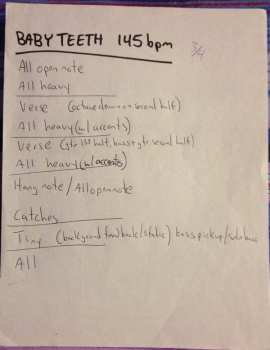 BABY TEETH 145bpm
3/4
All open note
All heavy
Verse (octave down on second half)
All heavy (w/ accents)
Verse (gtr 1st half, bass+gtr second half)
All heavy (w/ accents)
Hang note / All open note
Catches
(background feedback/static) bass pickup/
All